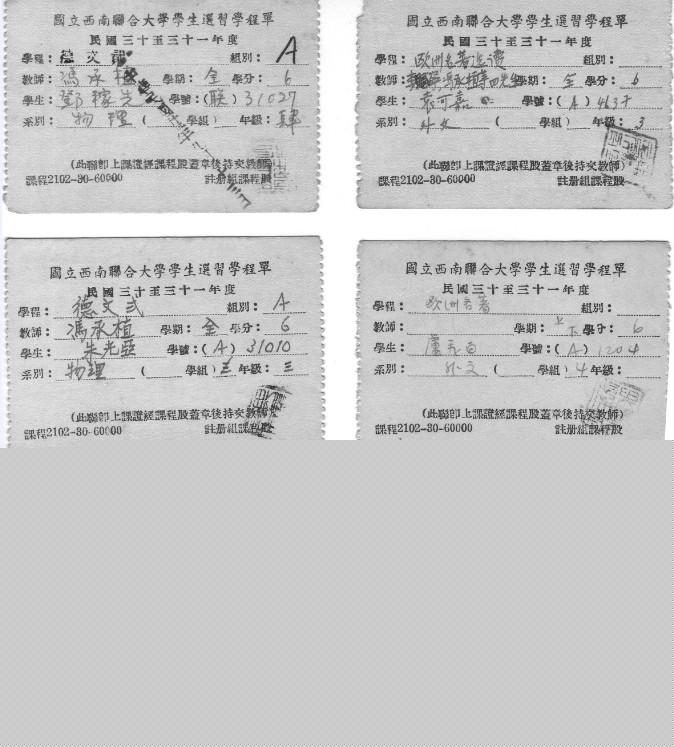 國立西南聯合大學學生選習學程單
民國三十至三十一年度
學程：德文 組別：A
教師：馮承植 學期：全 學分：6
學生：鄧稼先 學號：(联) 31027
系別：物理 ( 學組) 年級：肆
(此聯卽上課證經課程股蓋章後持交教師)
課程2102-30-60000 註册組課程股
國立西南聯合大學學生選習學程單
民國三十至三十一年度
學程：歐洲名著選讀 組別：
教師： 學期：全 學分：6
學生：袁可嘉 學號：(A) 4637
系別：外文 ( 學組) 年級：3
(此聯卽上課證經課程股蓋章後持交教師)
課程2102-30-60000 註册組課程股
國立西南聯合大學學生選習學程單
民國三十至三十一年度
學程：德文弍 組別：A
教師：馮承植 學期：全 學分：6
學生：朱光亞 學號：(A) 31010
系別：物理 ( 學組) 年級：三
(此聯卽上課證經課程股蓋章後持交教師)
課程2102-30-60000 註册組課程股
國立西南聯合大學學生選習學程單
民國三十至三十一年度
學程：歐洲名著 組別：
教師： 學期：上下 學分：6
學生： 學號：(A) 1204
系別：外文 ( 學組) 4 年級：
(此聯卽上課證經課程股蓋章後持交教師)
課程2102-30-60000 註册組課程股